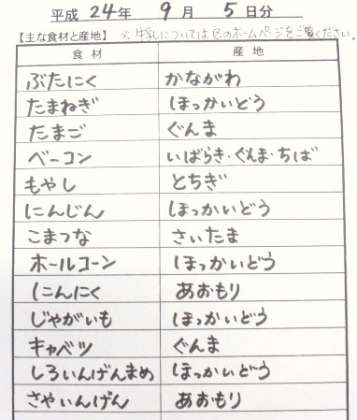 平成 24年 9月 5日分
【主な食材と産地】 ※牛乳については区のホームページをご覧ください。
食材 産地
ぶたにく かながわ
たまねぎ ほっかいどう
たまご ぐんま
ベーコン いばらき・ぐんま・ちば
もやし とちぎ
にんじん ほっかいどう
こまつな さいたま
ホールコーン ほっかいどう
にんにく あおもり
じゃがいも ほっかいどう
キャベツ ぐんま
しろいんげんまめ ほっかいどう
さやいんげん あおもり